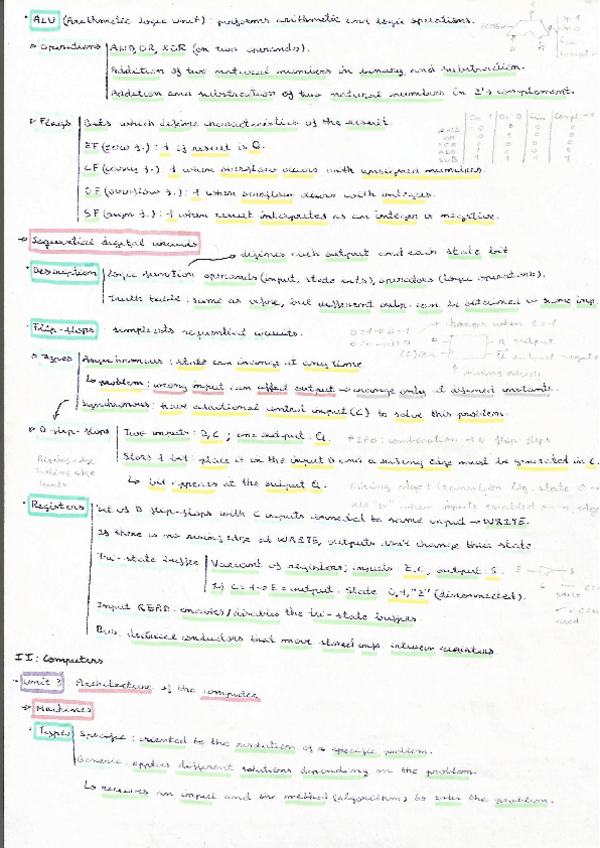 · ALU (Arithmetic logic unit): performs arithmetic and logic operations.
▹ Operations | AND, OR, XOR (on two operands).
Addition of two natural numbers in binary and substraction.
Addition and substraction of two natural numbers in 2's complement.
▹ Flags | Bits which define characteristics of the result.
ZF (zero f.): 1 if result is 0.
CF (carry f.): 1 when overflow occurs with unsigned numbers.
OF (overflow f.): 1 when overflow occurs with integers.
SF (sign f.): 1 when result interpreted as an integer is negative.
AND
OR
XOR
ADD
SUB
→ Sequential digital circuits
→ defines each output and each state bit
· Description | Logic function: operands (input, state bits), operators (logic operators).
Truth table: same as before, but different outp. can be obtained w same inp.
· Flip-flops simplests sequential circuits.
▹ Types | Asynchronous: state can change at any time
↳ problem: wrong input can affect output → change only at defined instants.
Synchronous: have additional control input (C) to solve this problem.
changes when C=1
▹ D flip-flops | Two inputs: D, C; one output: Q.
Stors 1 bit: place it on the input D and a rising edge must be generated in C.
↳ bit appears at the output Q.
Rising edge
· Registers | Set of D flip-flops with C inputs connected to same input → WRITE.
If there is no rising edge at WRITE, outputs don't change their state
Tri-state buffer | Variant of registers; inputs E, C, output: S.
If C=1 → E = output. State 0, 1, "Z" (disconnected).
Input READ: enables/disables the tri-state buffers.
Bus: electrical conductors that move stored info between registers
II: Computers
· Unit 3 Architecture of the computer
→ Machines
· Types | Specific: oriented to the resolution of a specific problem.
Generic: applies different solutions depending on the problem.
↳ requires an input and the method (algorithm) to solve the problem.